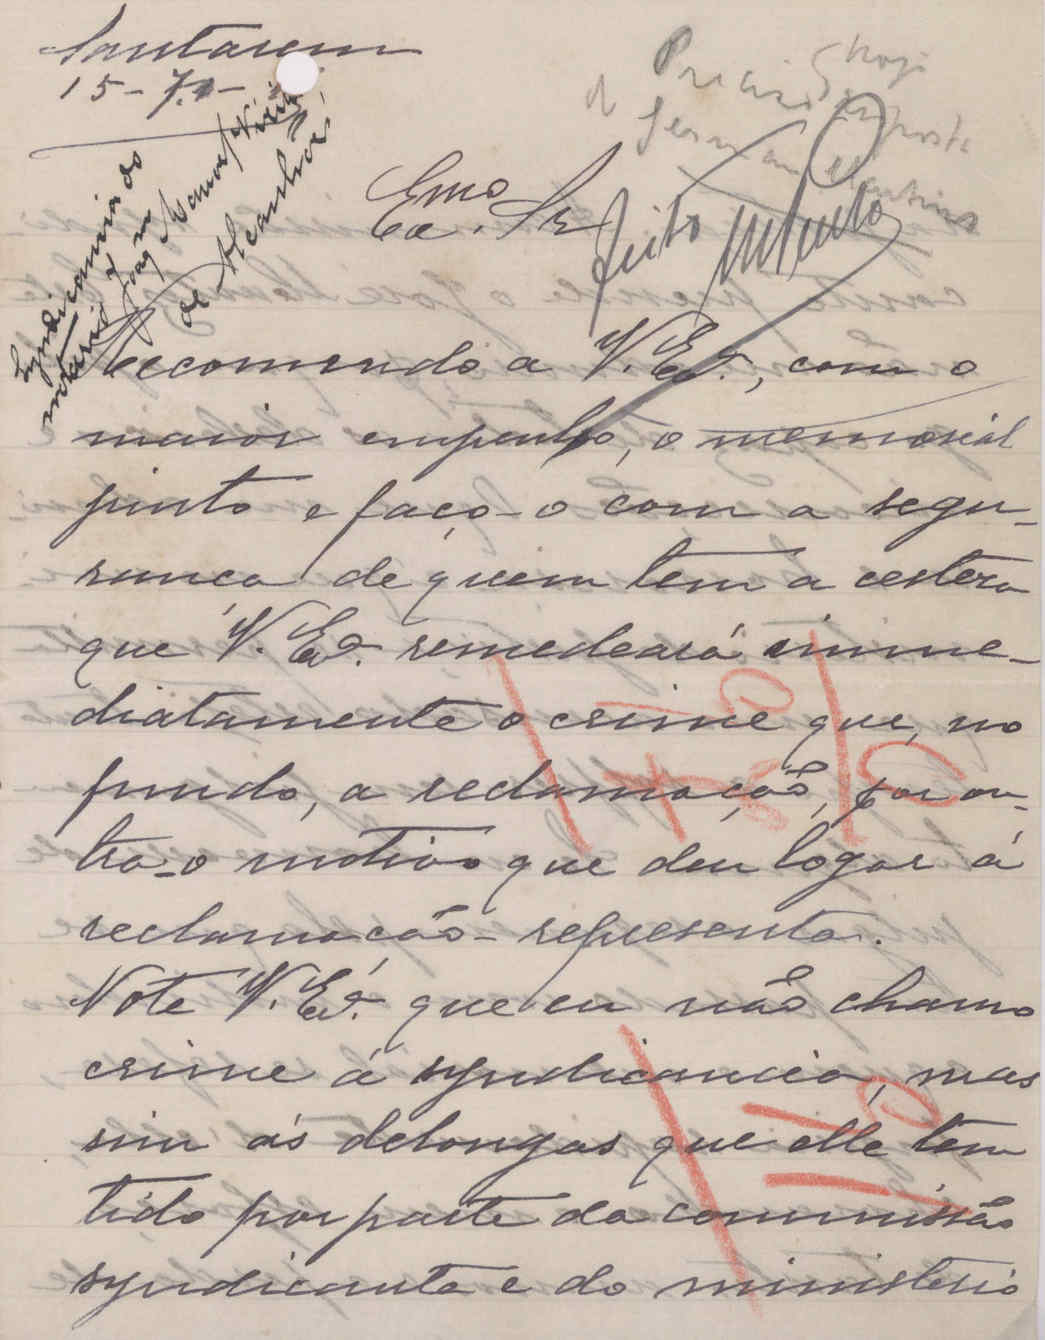 Santarem
15-7-
Syndicancia do
notario Joaqm
de Alcanhões
Exmo
Sr
Feito
Recommendo a V. Exª., com o
maior empenho, o memorial
junto e faço-o com a segu-
rança de quem tem a certeza
que V. Exª. remedeará imme-
diatamente o crime que, no
fundo, a reclamação, por ou-
tra-o motivo que deu logar á
reclamação-representa.
Note V. Exª. que eu não chamo
crime á syndicancia, mas
sim ás delongas que elle tem
tido por parte da commissão
syndicante e do ministerio